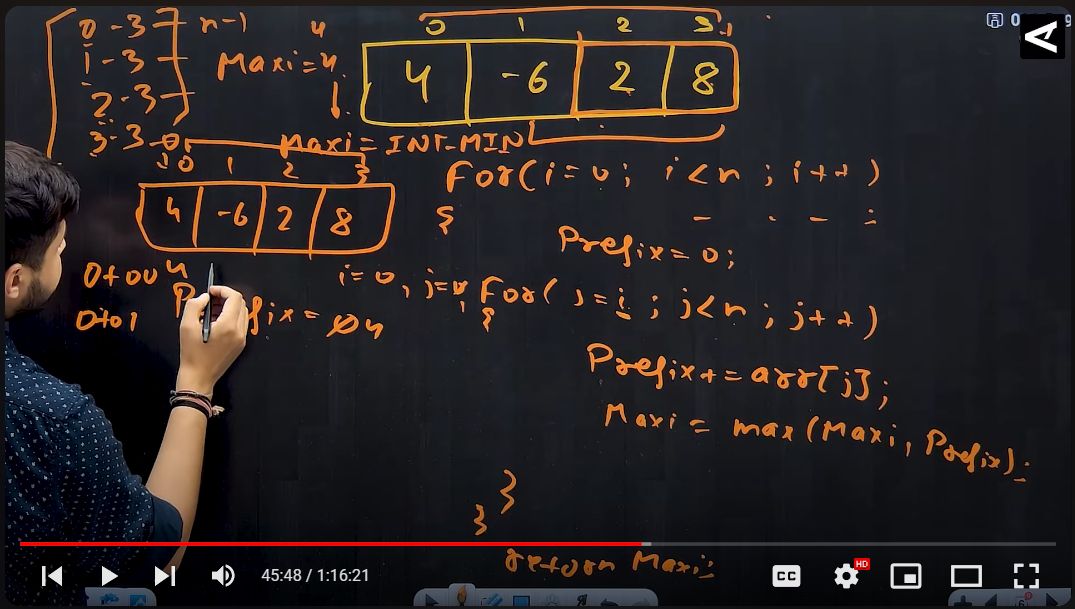 0 - 3
n-1
1 - 3
2 - 3
3 - 3
4
Maxi = 4
0 1 2 3
4 -6 2 8
Maxi = INT-MIN
0 1 2 3
4 -6 2 8
for(i=0; i<n; i++)
{
Prefix = 0;
0 to 0 4
i=0, j=0
for( j=i; j<n; j++)
{
0 to 1
Prefix = 0 4
Prefix += arr[j];
Maxi = max(Maxi, Prefix);
}
}
return Maxi;
45:48 / 1:16:21
CC
HD